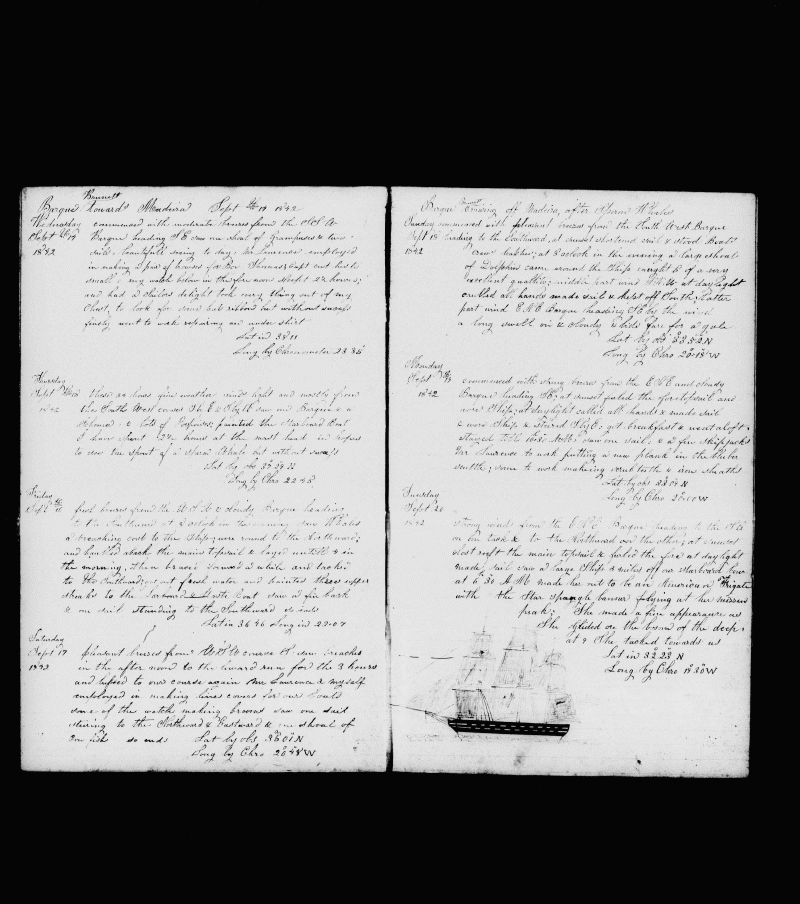 Brunett
Barque towards Madeira Sept 14 1842
Wednesday commenced with moderate breezes from the
Sept 14 Barque heading S E saw one shoal of Grampuses & two
1842 sails beautifull seeing to day; Mr Lawrence employed
in making 2 pair of trowses for
small; my watch below in the fore noon slept 2½ hours;
and had a childs delight took every thing out of my
Chest, to look for some but without success
finely went to work repairing an under shirt
Lat in 38 11
Long by Chronometer 23 35
Thursday
Sept 15 these 24 hours fine weather winds light and mostly from
1842 the South West course S E & S by E saw one Barque & a
& lots of Porpoises; painted the Starboard Boat
I have spent 2½ hours at the mast head in hopes
to see the spout of a Sperm Whale but without success
Lat by obs 37 39 N
Long by Chro 22 43
Friday
Sept 16 first breezes from the W S W & cloudy Barque heading
to the Southward at 3 oclock in the saw Whales
a breaching east to the Ship; wore round to the Northward;
and hauled aback the main topsail & layed untill 4 in
the morning, then braced forward a while and tacked
to the Southward; got up fresh water and painted three upper
streaks to the Larboard Boat saw a fin back
& one sail standing to the Southward so ends
Lat in 36 46 Long in 22 07
Saturday
Sept 17 Pleasant breezes from W S W course S saw breaches
1842 in the after noon to the leward run for the 3 hours
and luffed to our course again Mr Lawrence & myself
employed in making lines covers for our boats
some of the watch making brooms saw one sail
steering to the Northward & Eastward & one shoal of
fish so ends Lat by obs 36°01 N
Long by Chro 20°48 W
Barque Cruising off Madeira after Sperm Whales
Sunday commenced with pleasant breezes from the South West Barque
Sept 18 heading to the Southward, at sunset shortened sail & stood Boats
1842 Crew watches; at 8 oclock in the evening a large shoal
of Dolphins came around the Ship; caught 6 of a very
excellent quality; middle part wind W S W at daylight
called all hands made sail & kept off South; latter
part wind E N E Barque heading S E by the wind
a long swell on & cloudy & bids fair for a gale
Lat by obs 33°52 N
Long by Chro 20°18 W
Monday
Sept 19 commenced with strong breezes from the E N E and cloudy
1842 Barque heading SE, at sunset furled the foretopsail and
wore Ship; at daylight called all hands & made sail
& wore Ship & steered S by E; got breakfast & went aloft
stayed till 10:30 AM; saw one sail & a few skipjacks
Mr Lawrence to work putting a new plank in the blubber
scuttle; some to work making scrub cloth & iron sheaths
Lat by obs 33 04 N
Long by Chro 20 00 W
Tuesday
Sept 20
1842 strong winds from the E N E Barque heading to the S E
on one tack & to the Northward on the other; at sunset
close reeft the main topsail & furled the fore at daylight
made sail saw a large Ship 4 miles off our Starboard bow
at 6 30 AM made her out to be an American Frigate
with the Star spangle banner flying at her mizzen
peak; She made a fine appearance as
She glided on the bosom of the deep;
at 9 She tacked towards us
Lat in 32 28 N
Long by Chro 19°30 W